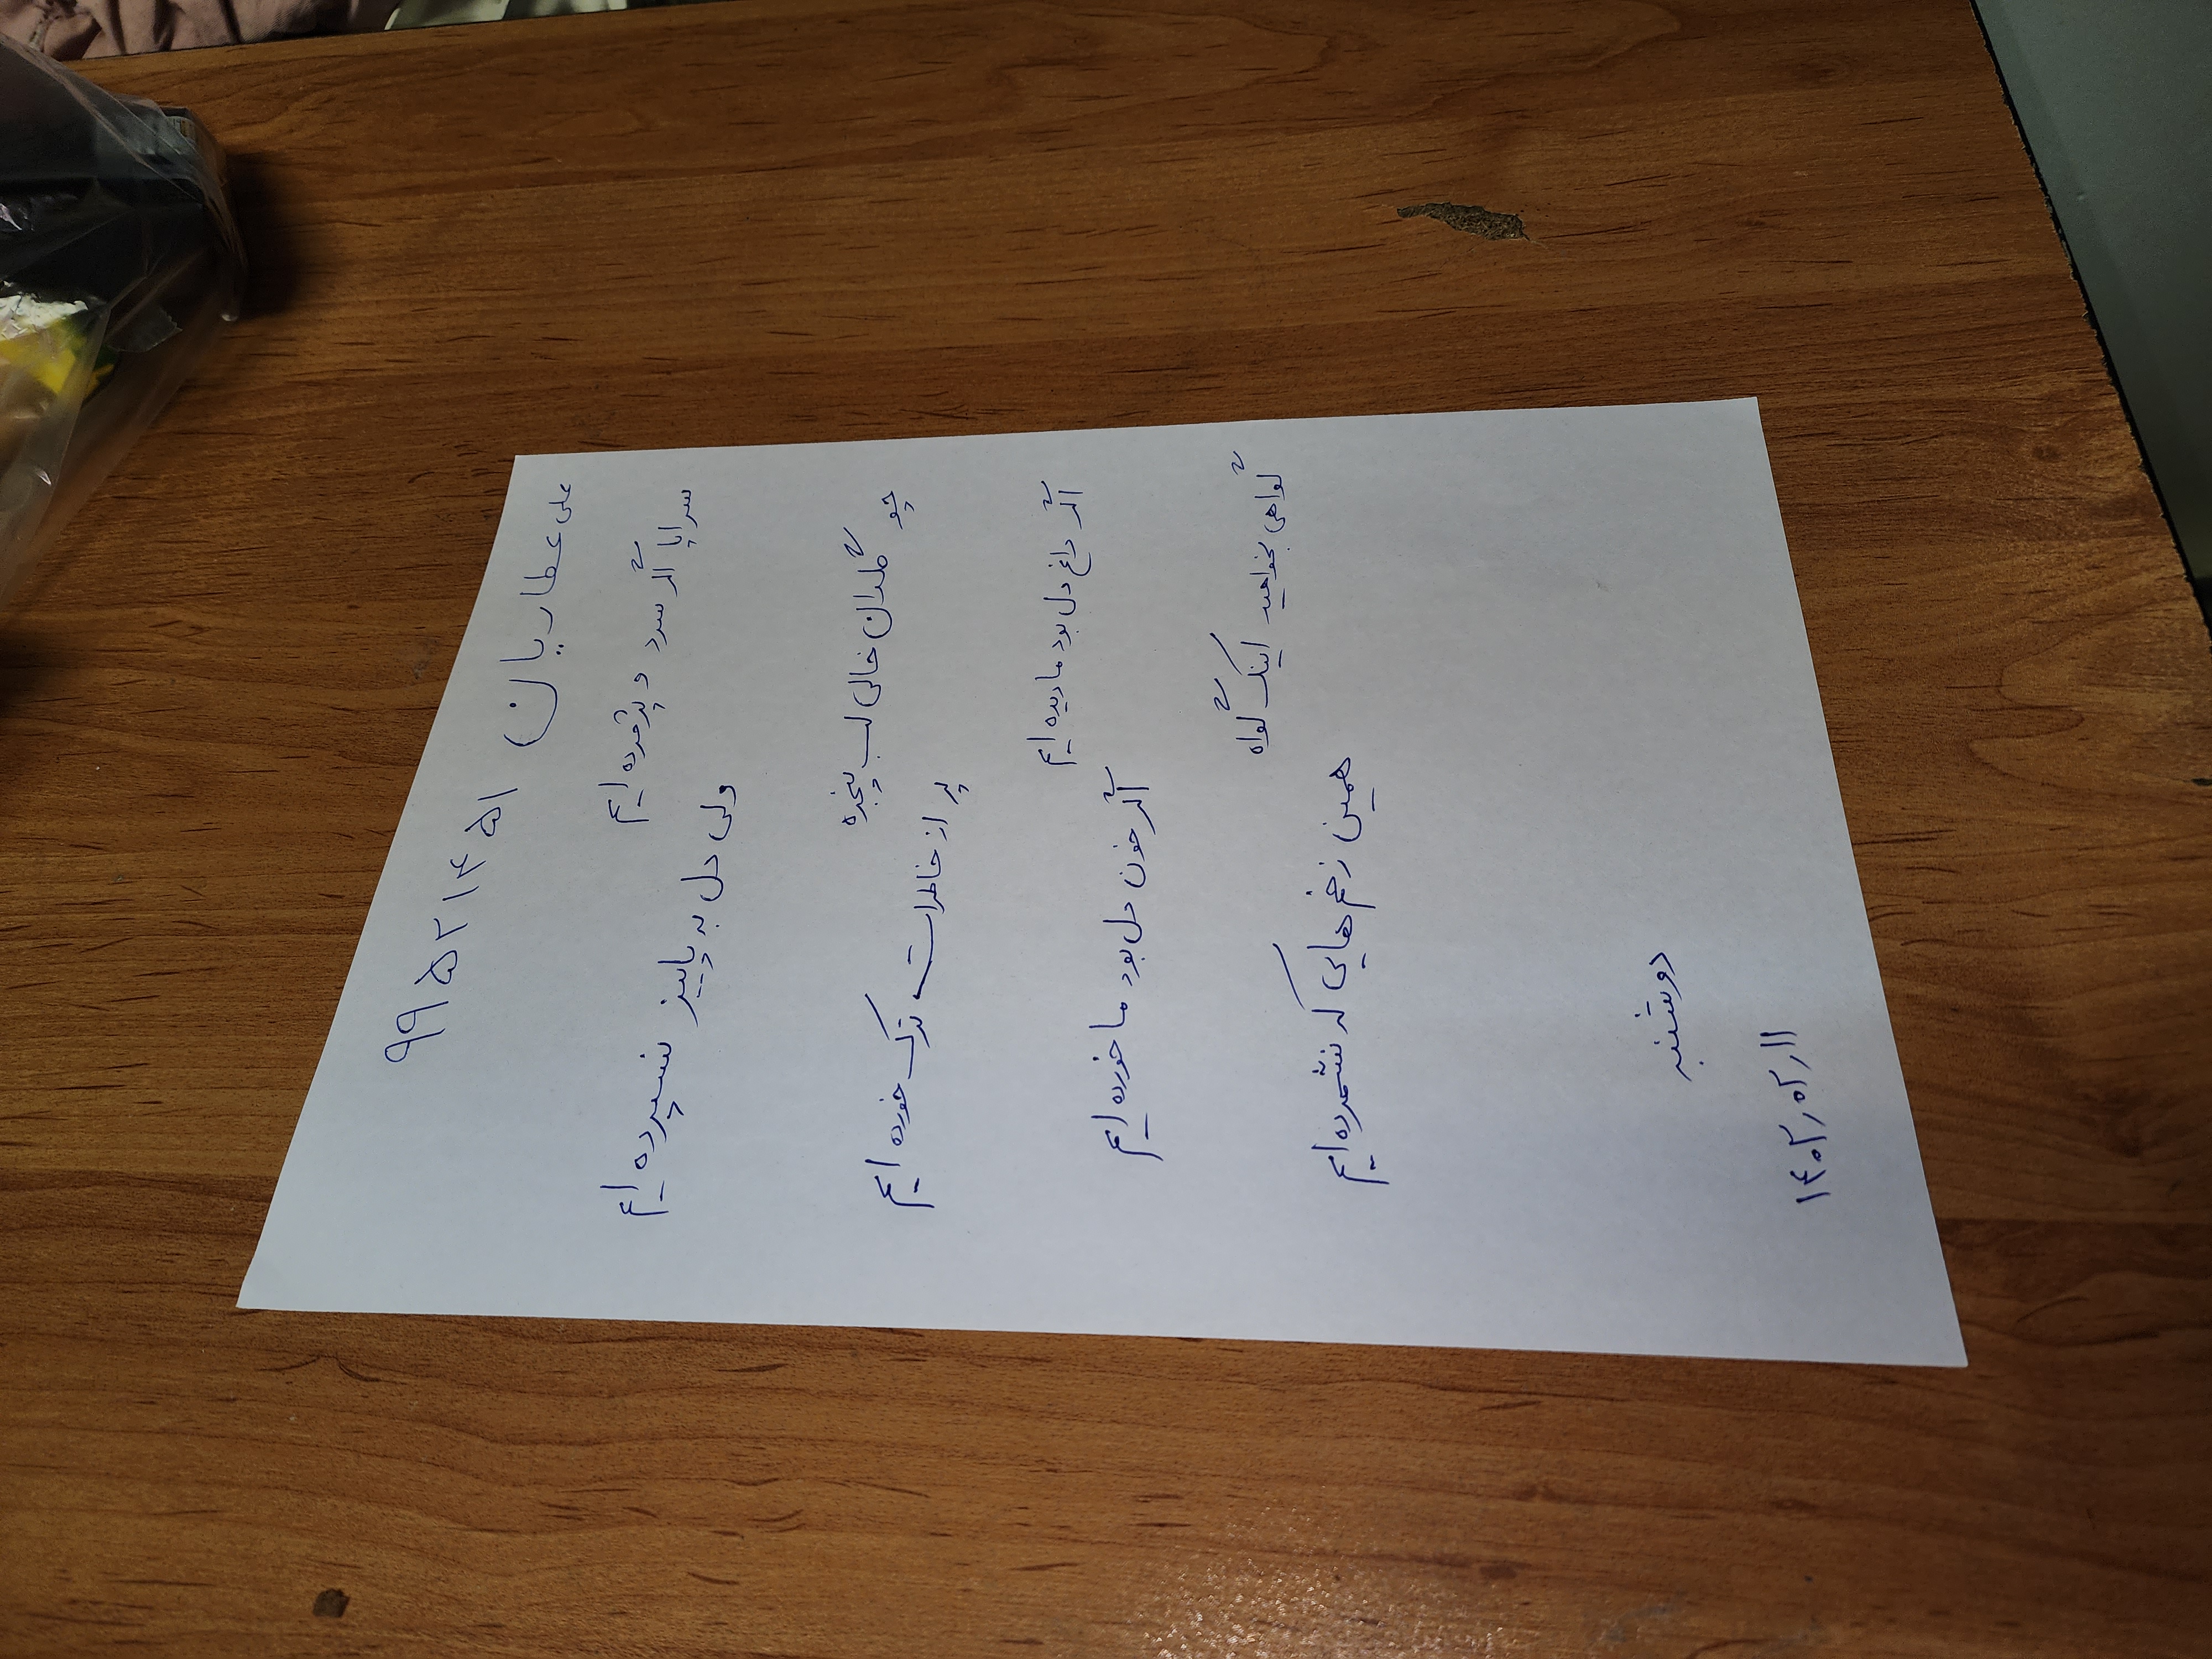 علی عطاریان ۹۹۵۲۱۴۵۱
سراپا اگر سرد و پژمرده ایم
ولی دل به پاییز نسپرده ایم
چو گلدان خالی لب پنجره
پر از خاطرات ترک خورده ایم
اگر داغ دل بود ما دیده ایم
اگر خون دل بود ما خورده ایم
گواهی بخواهید اینک گواه
همین زخم هایی که نشمرده ایم
دوشنبه
۱۴۰۲٫۰۲٫۱۱